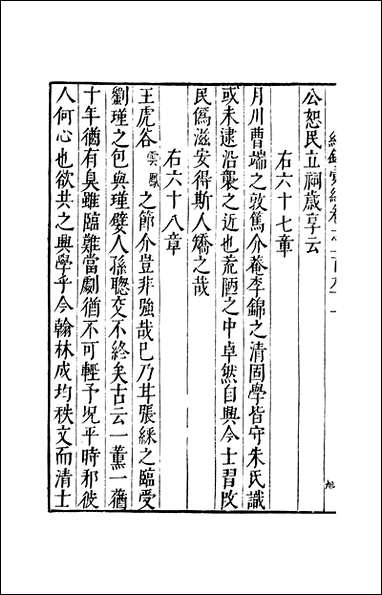 公恕民立祠歲享云
右六十七章
月川曹端之敦篤介菴李錦之清固學皆守朱氏識
或未逮沿襲之近也荒陋之中卓然自興今士習攷
民僞滋安得斯人矯之哉
右六十八章
王虎谷雲鳳之節介豈非強哉已乃茸張綵之臨受
劉瑾之包與瑾嬖人孫聦交不終矣古云一薰一蕕
十年猶有臭雖臨難當劇猶不可輕予況平時邪彼
人何心也欲共之興學乎今翰林成均秩文而清士